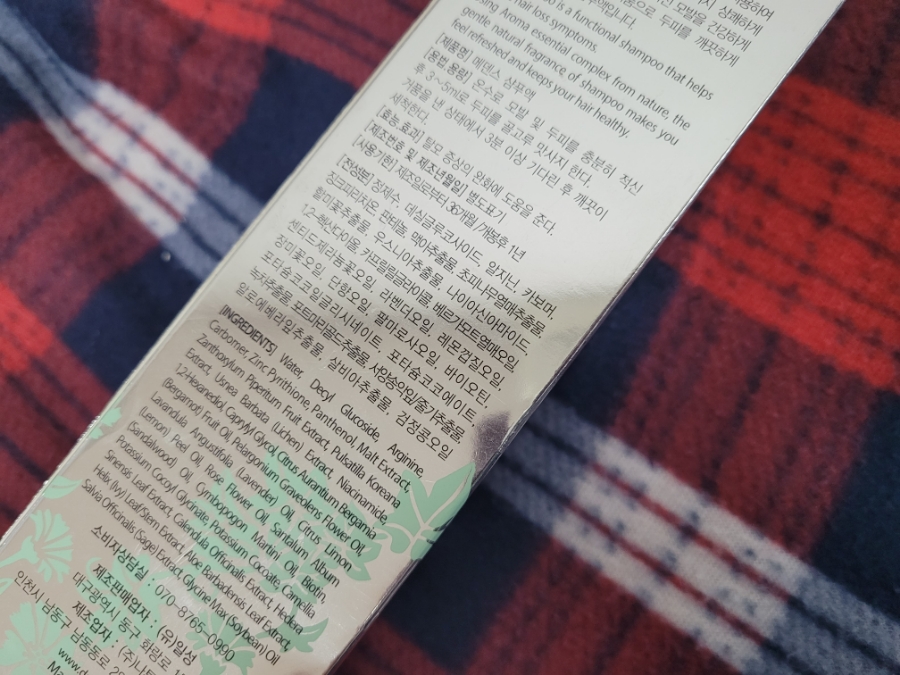 지 상쾌하게
모발을 건강하게
으로 두피를 깨끗하게
is a functional shampoo that helps
hair loss symptoms.
using Aroma essential complex from nature, the
gentle natural fragrance of shampoo makes you
feel refreshed and keeps your hair healthy.
[제품명] 메덴스 샴푸액
[용법·용량] 온수로 모발 및 두피를 충분히 적신
후 3~5ml로 두피를 골고루 맛사지 한다.
거품을 낸 상태에서 3분 이상 기다린 후 깨끗이
세척한다.
[효능·효과] 탈모 증상의 완화에 도움을 준다.
[제조번호 및 제조년월일] 별도표기
[사용기한] 제조일로부터 36개월/개봉후 1년
[전성분] 정제수, 데실글루코사이드, 알지닌, 카보머,
징크피리치온, 판테놀, 맥아추출물, 초피나무열매추출물,
할미꽃추출물, 우스니아추출물, 나이아신아마이드,
1,2-헥산다이올, 카프릴릴글라이콜, 베르가모트열매오일,
센티드제라늄꽃오일, 라벤더오일, 레몬껍질오일,
장미꽃오일, 단향오일, 팔마로사오일, 바이오틴,
포타슘코코일글리시네이트, 포타슘코코에이트,
녹차추출물, 포트마리골드추출물, 서양송악잎/줄기추출물,
알로에베라잎추출물, 살비아추출물, 검정콩오일
[INGREDIENTS] Water, Decyl Glucoside, Arginine,
Carbomer, Zinc Pyrithione, Panthenol, Malt Extract,
Zanthoxylum Piperitum Fruit Extract, Pulsatilla Koreana
Extract, Usnea Barbata (Lichen) Extract, Niacinamide,
1,2-Hexanediol, Caprylyl Glycol, Citrus Aurantium Bergamia
(Bergamot) Fruit Oil, Pelargonium Graveolens Flower Oil,
Lavandula Angustifolia (Lavender) Oil, Citrus Limon
(Lemon) Peel Oil, Rose Flower Oil, Santalum Album
(Sandalwood) Oil, Cymbopogon Martini Oil, Biotin,
Potassium Cocoyl Glycinate, Potassium Cocoate, Camellia
Sinensis Leaf Extract, Calendula Officinalis Extract, Hedera
Helix (Ivy) Leaf/Stem Extract, Aloe Barbadensis Leaf Extract,
Salvia Officinalis (Sage) Extract, Glycine Max (Soybean) Oil
소비자상담실 : 070-8765-0990
제조판매업자 : (유)일성
대구광역시 동구 화랑로 1
제조업자 : (주)나투
인천시 남동구 남동동로 29
www.d
Ma